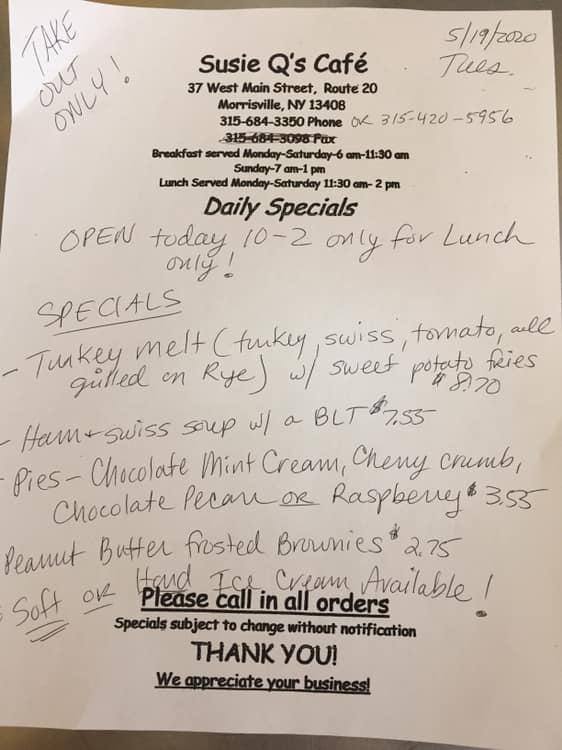 TAKE
OUT
ONLY!
5/19/2020
Tues.
Susie Q's Café
37 West Main Street, Route 20
Morrisville, NY 13408
315-684-3350 Phone OR 315-420-5956
315-684-3098 Fax
Breakfast served Monday-Saturday-6 am-11:30 am
Sunday-7 am-1 pm
Lunch Served Monday-Saturday 11:30 am- 2 pm
Daily Specials
OPEN today 10-2 only for Lunch
only!
SPECIALS
- Turkey melt (turkey, swiss, tomato, all
grilled on Rye) w/ sweet potato fries
$8.70
- Ham + swiss soup w/ a BLT $7.55
- Pies - Chocolate Mint Cream, Cherry crumb,
Chocolate Pecan OR Raspberry $3.55
Peanut Butter frosted Brownies $2.75
Soft OR Hard Ice Cream Available!
Please call in all orders
Specials subject to change without notification
THANK YOU!
We appreciate your business!